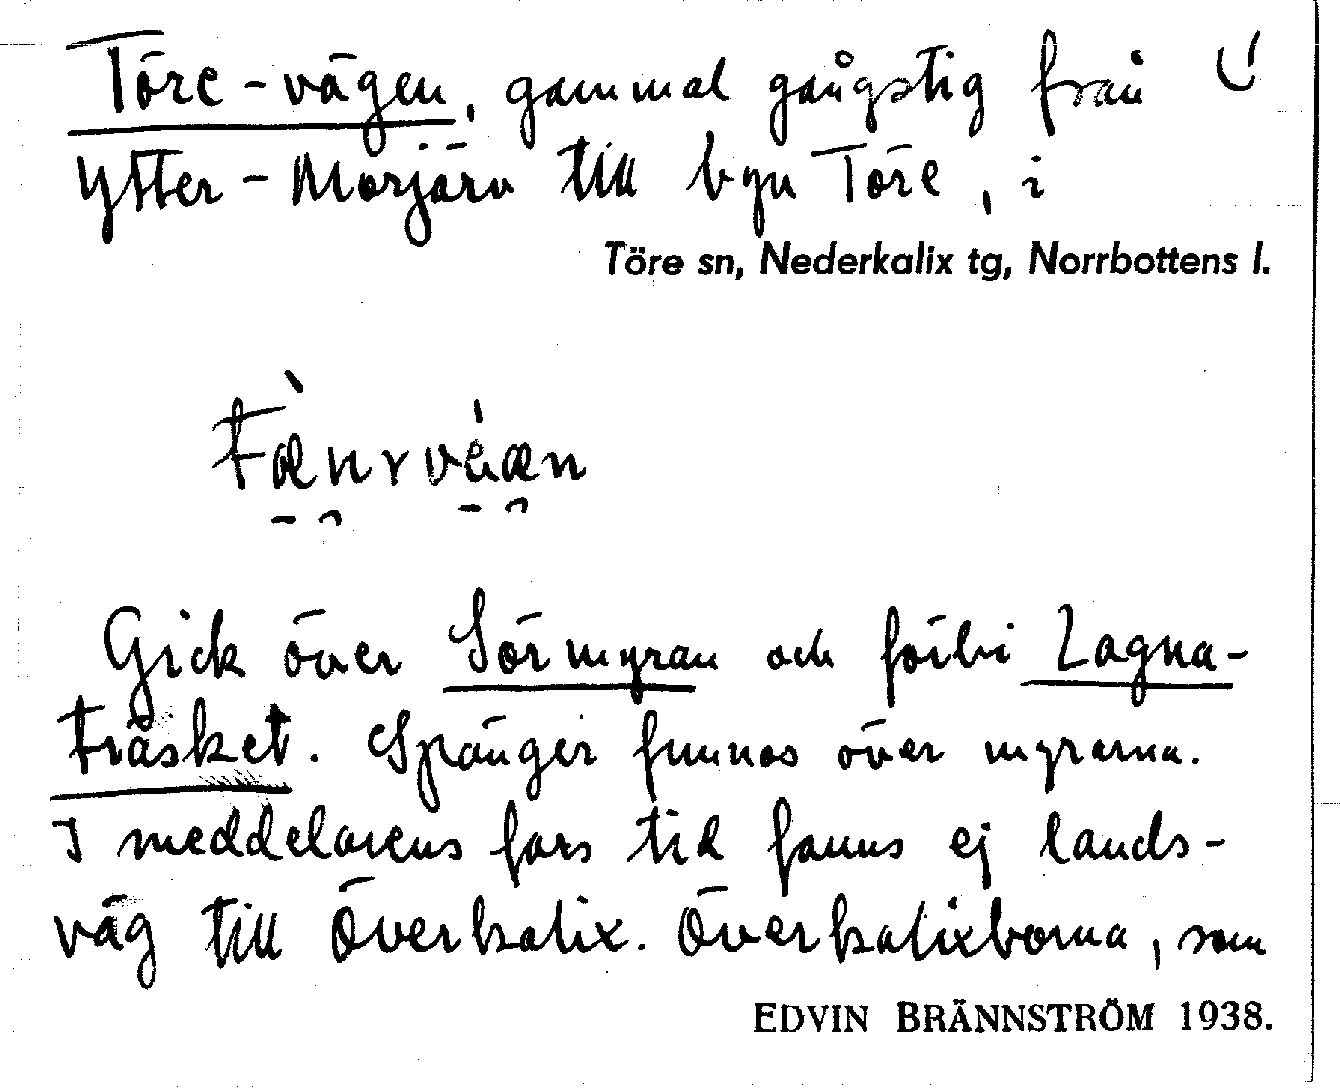 Töre-vägen, gammal gångstig från
Ytter-Morjärv till byn Töre, i
Töre sn, Nederkalix tg, Norrbottens l.
Gick över Sörmyran och förbi Lagna-
träsket. Spänger funnos över myrarna.
I meddelarens fars tid fanns ej lands-
väg till Överkalix. Överkalixborna, som
EDVIN BRÄNNSTRÖM 1938.